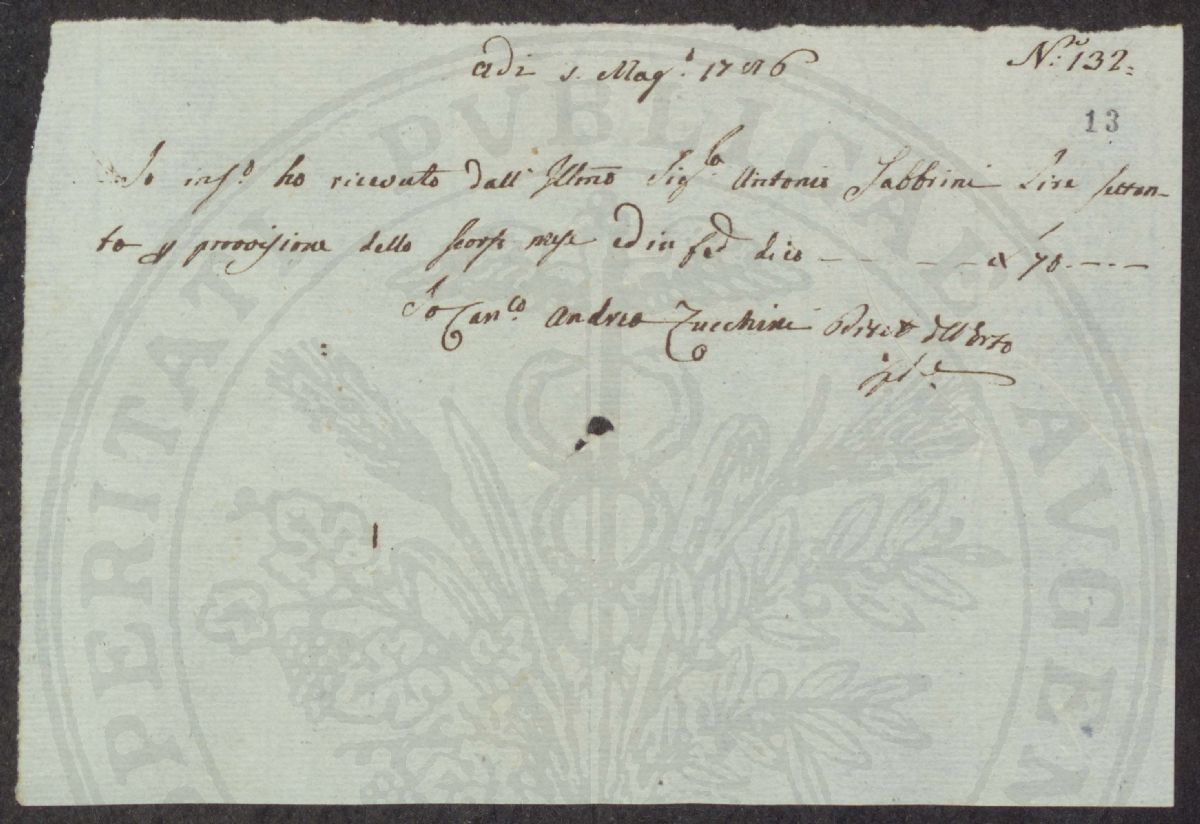 N.º 132=
adi 1. Magº 1786
13
Io infº ho ricevuto dall' Illmo Sigre Antonio Fabbrini Lire settan-
ta p provisione dello scorso mese ed in fed dico — — — — £ 70 — — —
Io Canco Andrea Zucchini Diret dell Orto
PVBLICAE